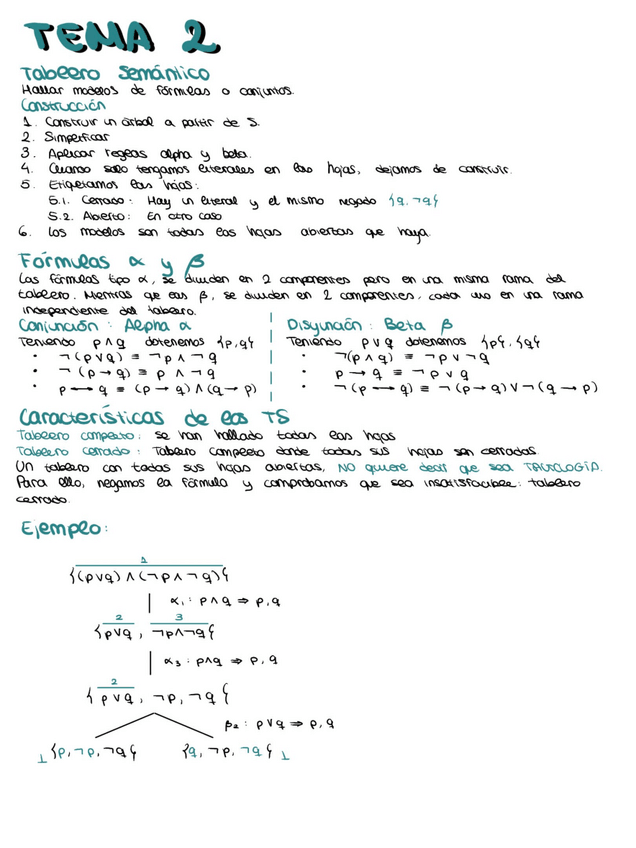 TEMA 2
Tablero semántico
Hallar modelos de fórmulas o conjuntos.
Construcción
1. Construir un árbol a partir de S.
2. Simplificar
3. Aplicar reglas alpha y beta.
4. Cuando solo tengamos literales en las hojas, dejamos de construir.
5. Etiquetamos las hojas:
5.1. Cerrado: Hay un literal y el mismo negado {q, ¬q}
5.2. Abierto: En otro caso
6. Los modelos son todas las hojas abiertas que haya.
Fórmulas α y β
Las fórmulas tipo α, se dividen en 2 componentes pero en una misma rama del
tablero. Mientras que las β, se dividen en 2 componentes, cada uno en una rama
independiente del tablero.
Conjunción: Alpha α
Teniendo p∧q obtenemos {p,q}
• ¬(p∨q) ≡ ¬p ∧ ¬q
• ¬(p→q) ≡ p ∧ ¬q
• p⟷q ≡ (p→q)∧(q→p)
Disyunción: Beta β
Teniendo p∨q obtenemos {p}, {q}
• ¬(p∧q) ≡ ¬p∨¬q
• p→q ≡ ¬p∨q
• ¬(p⟷q) ≡ ¬(p→q)∨¬(q→p)
Características de los TS
Tablero completo: se han hallado todas las hojas
Tablero cerrado: Tablero completo donde todas sus hojas son cerradas.
Un tablero con todas sus hojas abiertas, NO quiere decir que sea TAUTOLOGÍA.
Para ello, negamos la fórmula y comprobamos que sea insatisfacible: tablero
cerrado.
Ejemplo:
1
{(p∨q)∧(¬p∧¬q)}
α₁: p∧q ⇒ p,q
2 3
{p∨q, ¬p∧¬q}
α₃: p∧q ⇒ p,q
2
{p∨q, ¬p, ¬q}
β₂: p∨q ⇒ p,q
⊥ {p,¬p,¬q} {q,¬p,¬q} ⊥